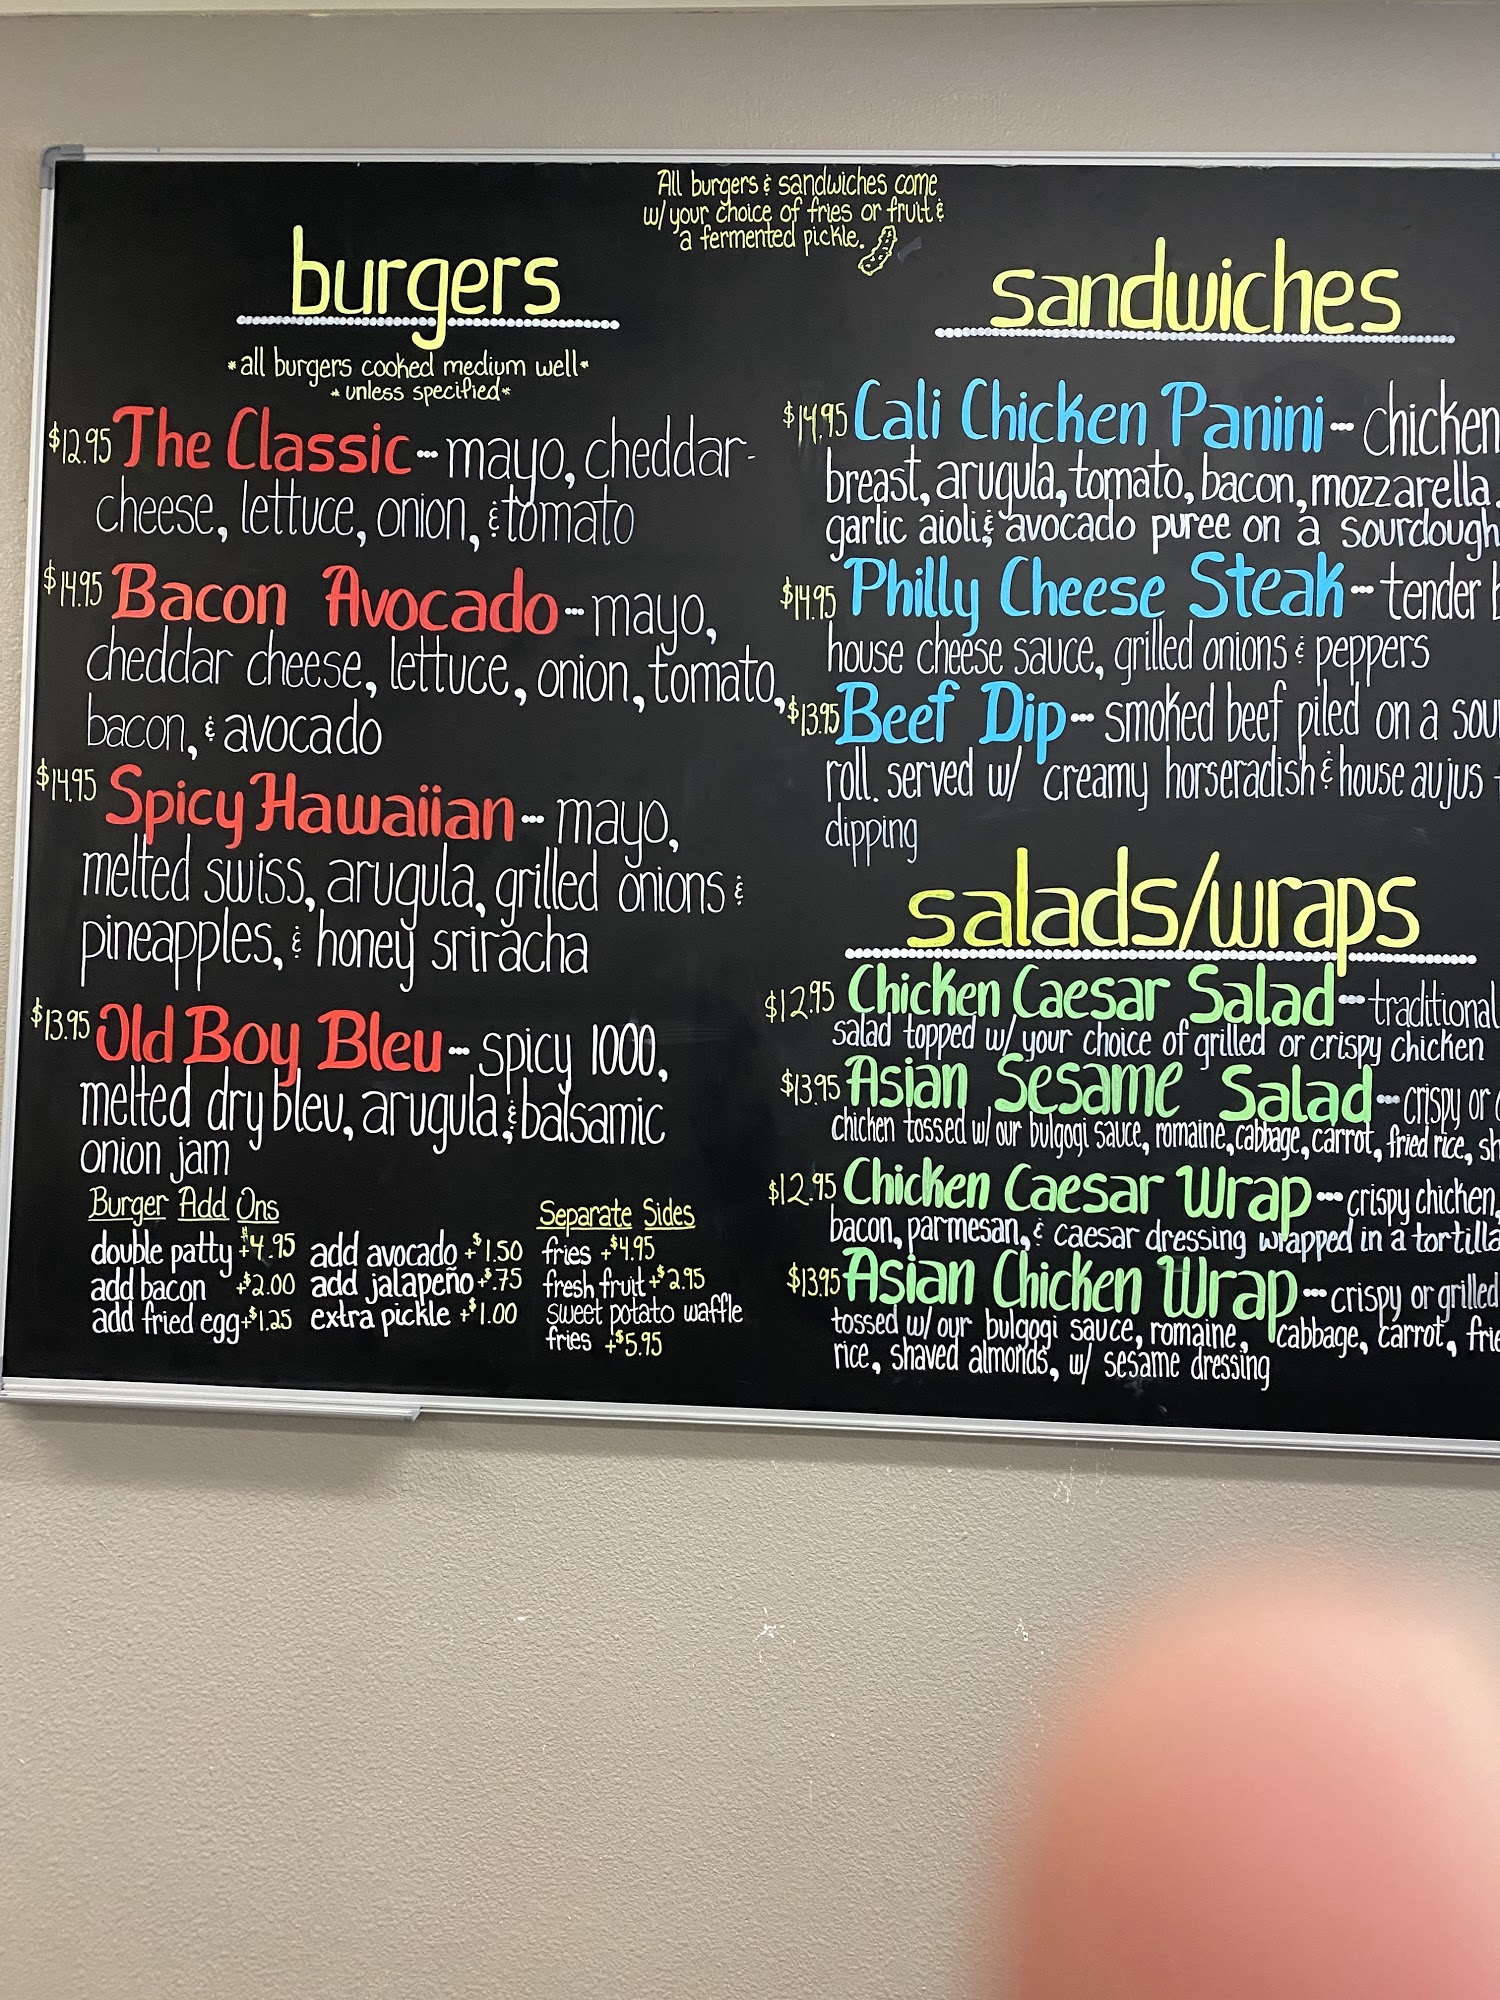 All burgers & sandwiches come
w/ your choice of fries or fruit &
a fermented pickle.
burgers
*all burgers cooked medium well*
*unless specified*
$12.95 The Classic--- mayo, cheddar-
cheese, lettuce, onion, & tomato
$14.95 Bacon Avocado--- mayo,
cheddar cheese, lettuce, onion, tomato,
bacon, & avocado
$14.95 Spicy Hawaiian--- mayo,
melted swiss, arugula, grilled onions &
pineapples, & honey sriracha
$13.95 Old Boy Bleu--- spicy 1000,
melted dry bleu, arugula, & balsamic
onion jam
Burger Add Ons
double patty +$4.95 add avocado +$1.50
add bacon +$2.00 add jalapeño +$.75
add fried egg +$1.25 extra pickle +$1.00
Separate Sides
fries +$4.95
fresh fruit +$2.95
sweet potato waffle
fries +$5.95
sandwiches
$14.95 Cali Chicken Panini--- chicken
breast, arugula, tomato, bacon, mozzarella
garlic aioli & avocado puree on a sourdough
$14.95 Philly Cheese Steak--- tender
house cheese sauce, grilled onions & peppers
$13.95 Beef Dip--- smoked beef piled on a
roll. served w/ creamy horseradish & house aujus
dipping
salads/wraps
$12.95 Chicken Caesar Salad--- traditional
salad topped w/ your choice of grilled or crispy chicken
$13.95 Asian Sesame Salad--- crispy or
chicken tossed w/ our bulgogi sauce, romaine, cabbage, carrot, fried rice,
$12.95 Chicken Caesar Wrap--- crispy chicken,
bacon, parmesan, & caesar dressing wrapped in a tortilla
$13.95 Asian Chicken Wrap--- crispy or grilled
tossed w/ our bulgogi sauce, romaine, cabbage, carrot,
rice, shaved almonds, w/ sesame dressing